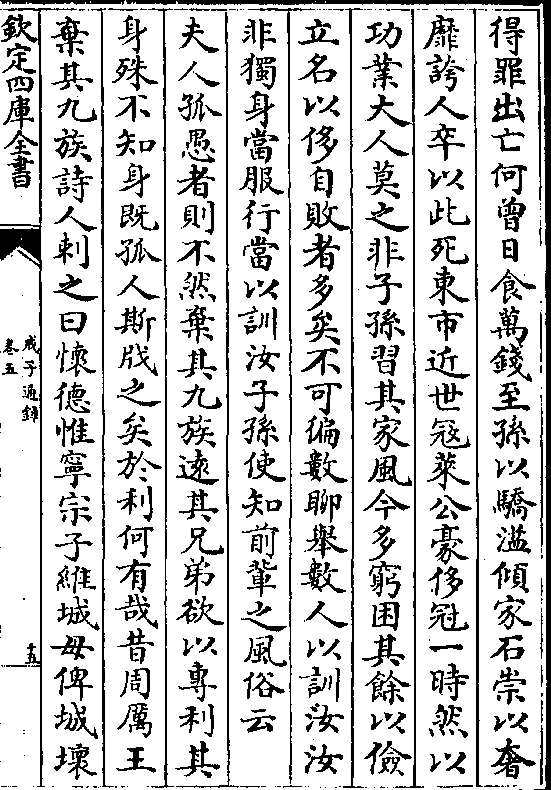 得罪出亡何曾日食萬錢至孫以驕溢傾家石崇以奢
靡誇人卒以此死東市近世冦萊公豪侈冠一時然以
功業大人莫之非子孫習其家風今多窮困其餘以儉
立名以侈自敗者多矣不可徧數聊舉數人以訓汝汝
非獨身當服行當以訓汝子孫使知前輩之風俗云
夫人孤愚者則不然棄其九族逺其兄弟欲以專利其
身殊不知身既孤人斯戕之矣於利何有哉昔周厲王
棄其九族詩人刺之曰懷德惟寧宗子維城毋俾城壊
欽定四庫全書
戒子通録
卷五
十五